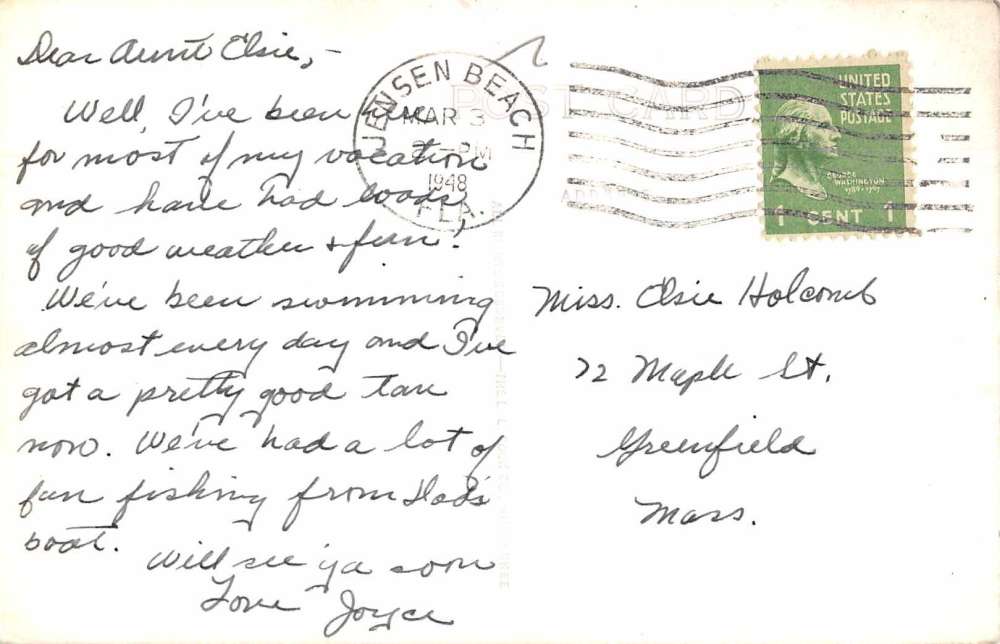 Dear Aunt Elsie,-
Well, I've been here
for most of my vacation
and have had loads
of good weather & fun!
We've been swimming
almost every day and I've
got a pretty good tan
now. We've had a lot of
fun fishing from Dad's
boat.
Will see ya soon
Love Joyce
POST CARD
JENSEN BEACH
MAR 3
PM
1948
FLA.
UNITED
STATES
POSTAGE
GEORGE
WASHINGTON
1789-1797
1 CENT 1
Miss. Elsie Holcomb
72 Maple St.
Greenfield
Mass.